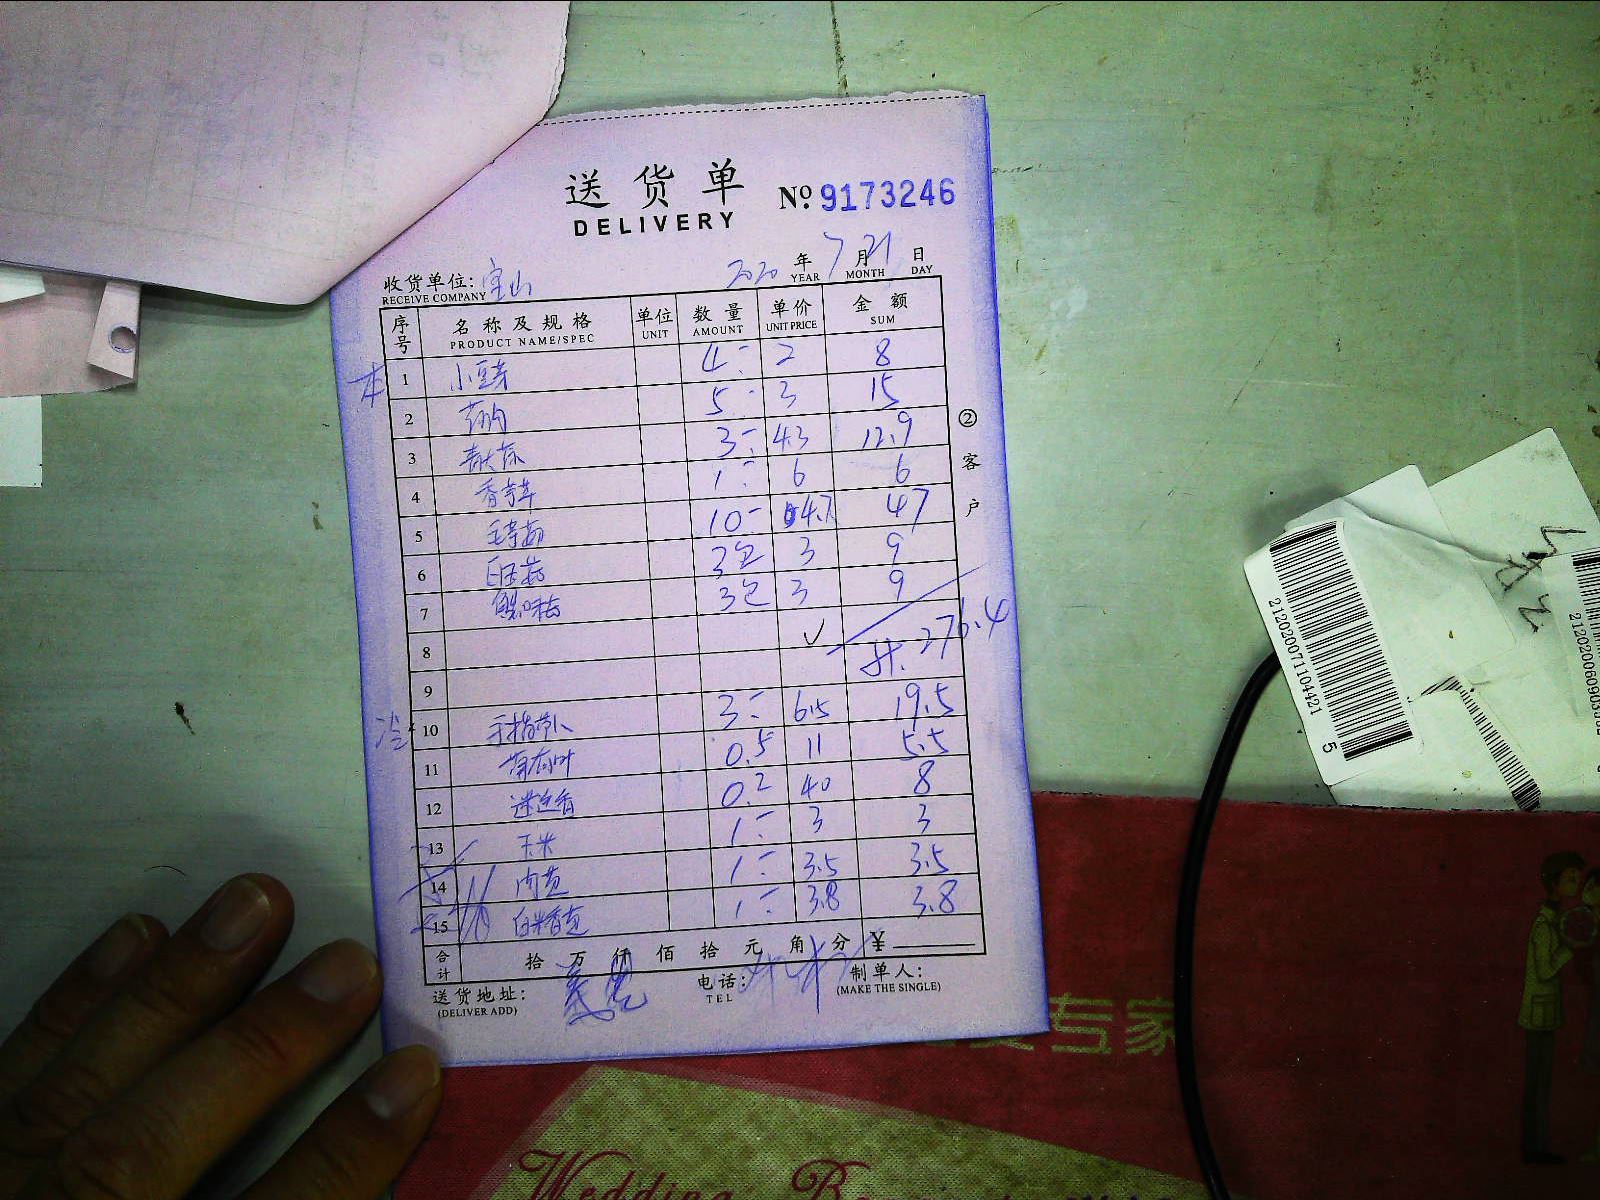 送货单
DELIVERY
№ 9173246
收货单位: 宝山 2020 年 7 月 21 日
RECEIVE COMPANY YEAR MONTH DAY
序号 名称及规格 单位 数量 单价 金额
PRODUCT NAME/SPEC UNIT AMOUNT UNIT PRICE SUM
本 1 小豆芽 4 2 8
2 5 3 15
3 3 4.3 12.9
4 香芹 1 6 6
5 10 4.7 47
6 3包 3 9
7 3包 3 9
8 ✓
9 计. 276.4
冷 10 手指萝卜 3 6.5 19.5
11 薄荷叶 0.5 11 5.5
12 迷迭香 0.2 40 8
13 玉米 1 3 3
14 1 3.5 3.5
15 1 3.8 3.8
合计 拾 万 仟 佰 拾 元 角 分 ¥
送货地址: 电话: 制单人:
(DELIVER ADD) TEL (MAKE THE SINGLE)
②客户
2120200711044215
专家
Wedding